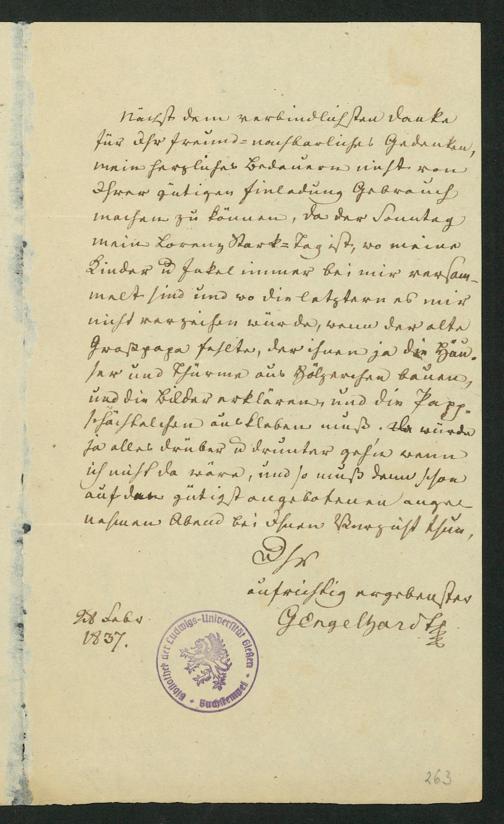 Nächst dem verbindlichsten Danke
für Ihr freund-nachbarliches Gedenken,
mein herzliches Bedauern nicht von
Ihrer gütigen Einladung Gebrauch
machen zu können, da der Sonntag
mein Lorenz Stark-Tag ist, wo meine
Kinder u Enkel immer bei mir versam-
melt sind und wo die letztern es mir
nicht verzeihen würde, wenn der alte
Großpapa fehlte, der ihnen ja die Häu-
ser und Thürme aus Hölzerchen bauen,
und die Bilder erklären, und die Papp-
schächtelchen auskleben muß. Es würde
ja alles drüber u drunter gehn wenn
ich nicht da wäre, und so muß denn schon
auf den gütigst angebotenen ange-
nehmen Abend bei Ihnen Verzicht thun,
Ihr
aufrichtig ergebenster
GEngelhardt
28 Febr
1837.
Bibliothek der Ludwigs-Universität Gießen
Buchstempel
263